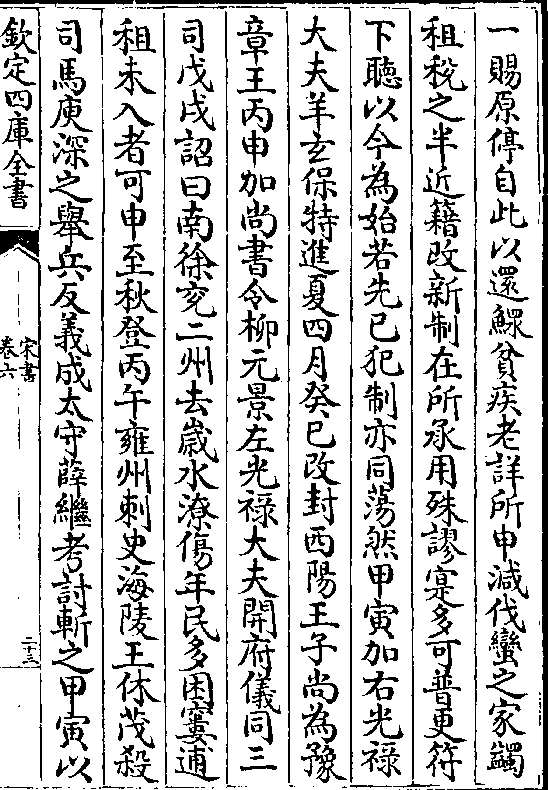 一賜原停自此以還鰥貧疾老詳所申減伐蠻之家蠲
租稅之半近籍改新制在所承用殊謬寔多可普更符
下聽以今為始若先已犯制亦同蕩然甲寅加右光祿
大夫羊玄保特進夏四月癸巳改封西陽王子尚為豫
章王丙申加尚書令柳元景左光祿大夫開府儀同三
司戊戌詔曰南徐兗二州去歲水潦傷年民多困窶逋
租未入者可申至秋登丙午雍州刺史海陵王休茂殺
司馬庾深之舉兵反義成太守薛繼考討斬之甲寅以
欽定四庫全書
宋書
卷六
二十三